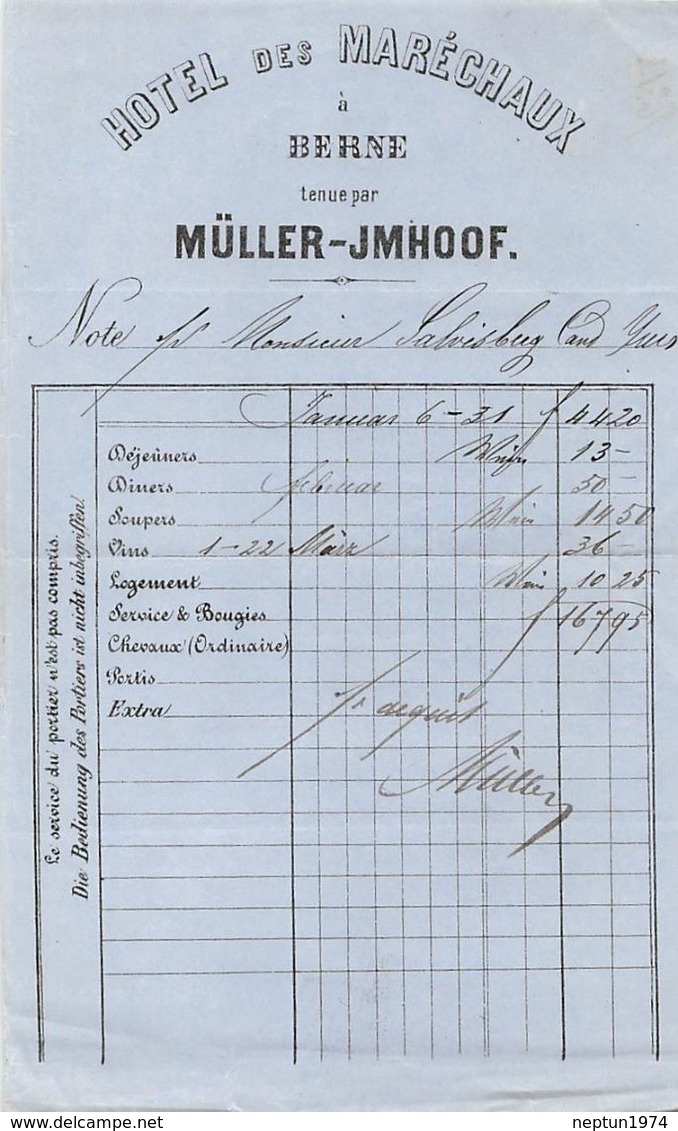 HOTEL DES MARÉCHAUX
à
BERNE
tenue par
MÜLLER-JMHOOF.
Note pr Monsieur Salvisberg Cand Jur
Januar 6-31 f 44 20
Déjeûners Wein 13 -
Diners Februar 50 -
Soupers Wein 14 50
Vins 1-22 März 36 -
Logement Wein 10 25
Service & Bougies f 167 95
Chevaux (Ordinaire)
Portis
Extra pr acquit
Müller
Le service du portier n'est pas compris.
Die Bedienung des Portiers ist nicht inbegriffen.
neptun1974